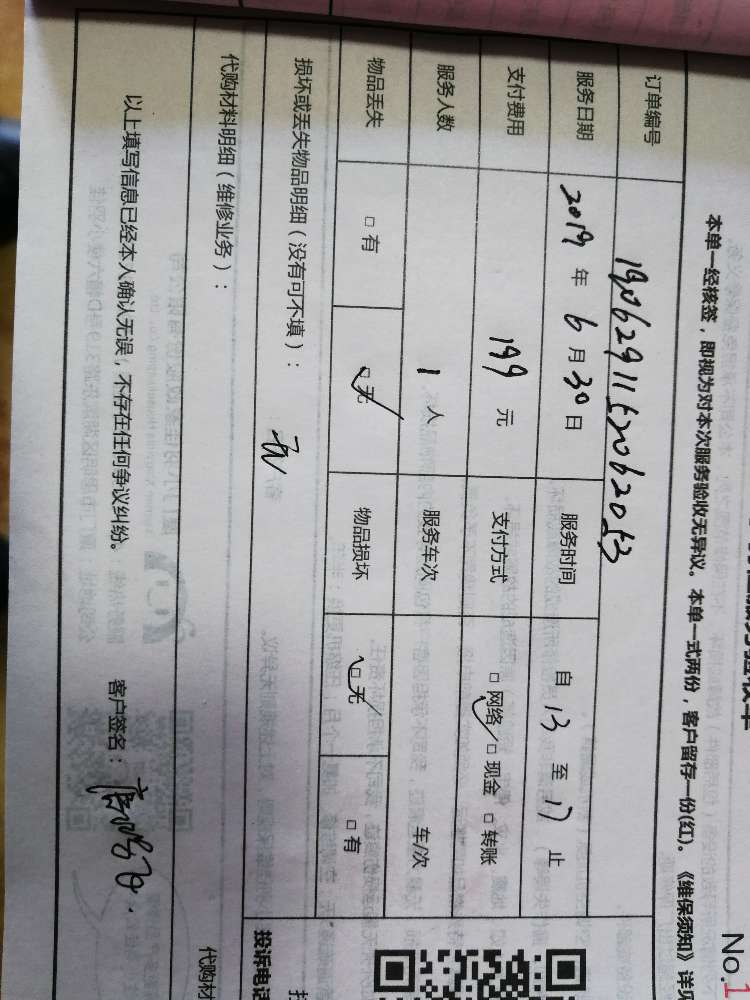 No.1
本单一经核签，即视为对本次服务验收无异议。本单一式两份，客户留存一份(红)。《维保须知》详见
订单编号 1906291152062053
服务日期 2019 年 6 月 30 日 服务时间 自 13 至 17 止
支付费用 199 元 支付方式 □ 网络 □ 现金 □ 转账
服务人数 1 人 服务车次 车/次
物品丢失 □ 有 □ 无 物品损坏 □ 无 □ 有
损坏或丢失物品明细（没有可不填）： 无
代购材料明细（维修业务）：
以上填写信息已经本人确认无误，不存在任何争议纠纷。 客户签名：
投诉电话
代购材